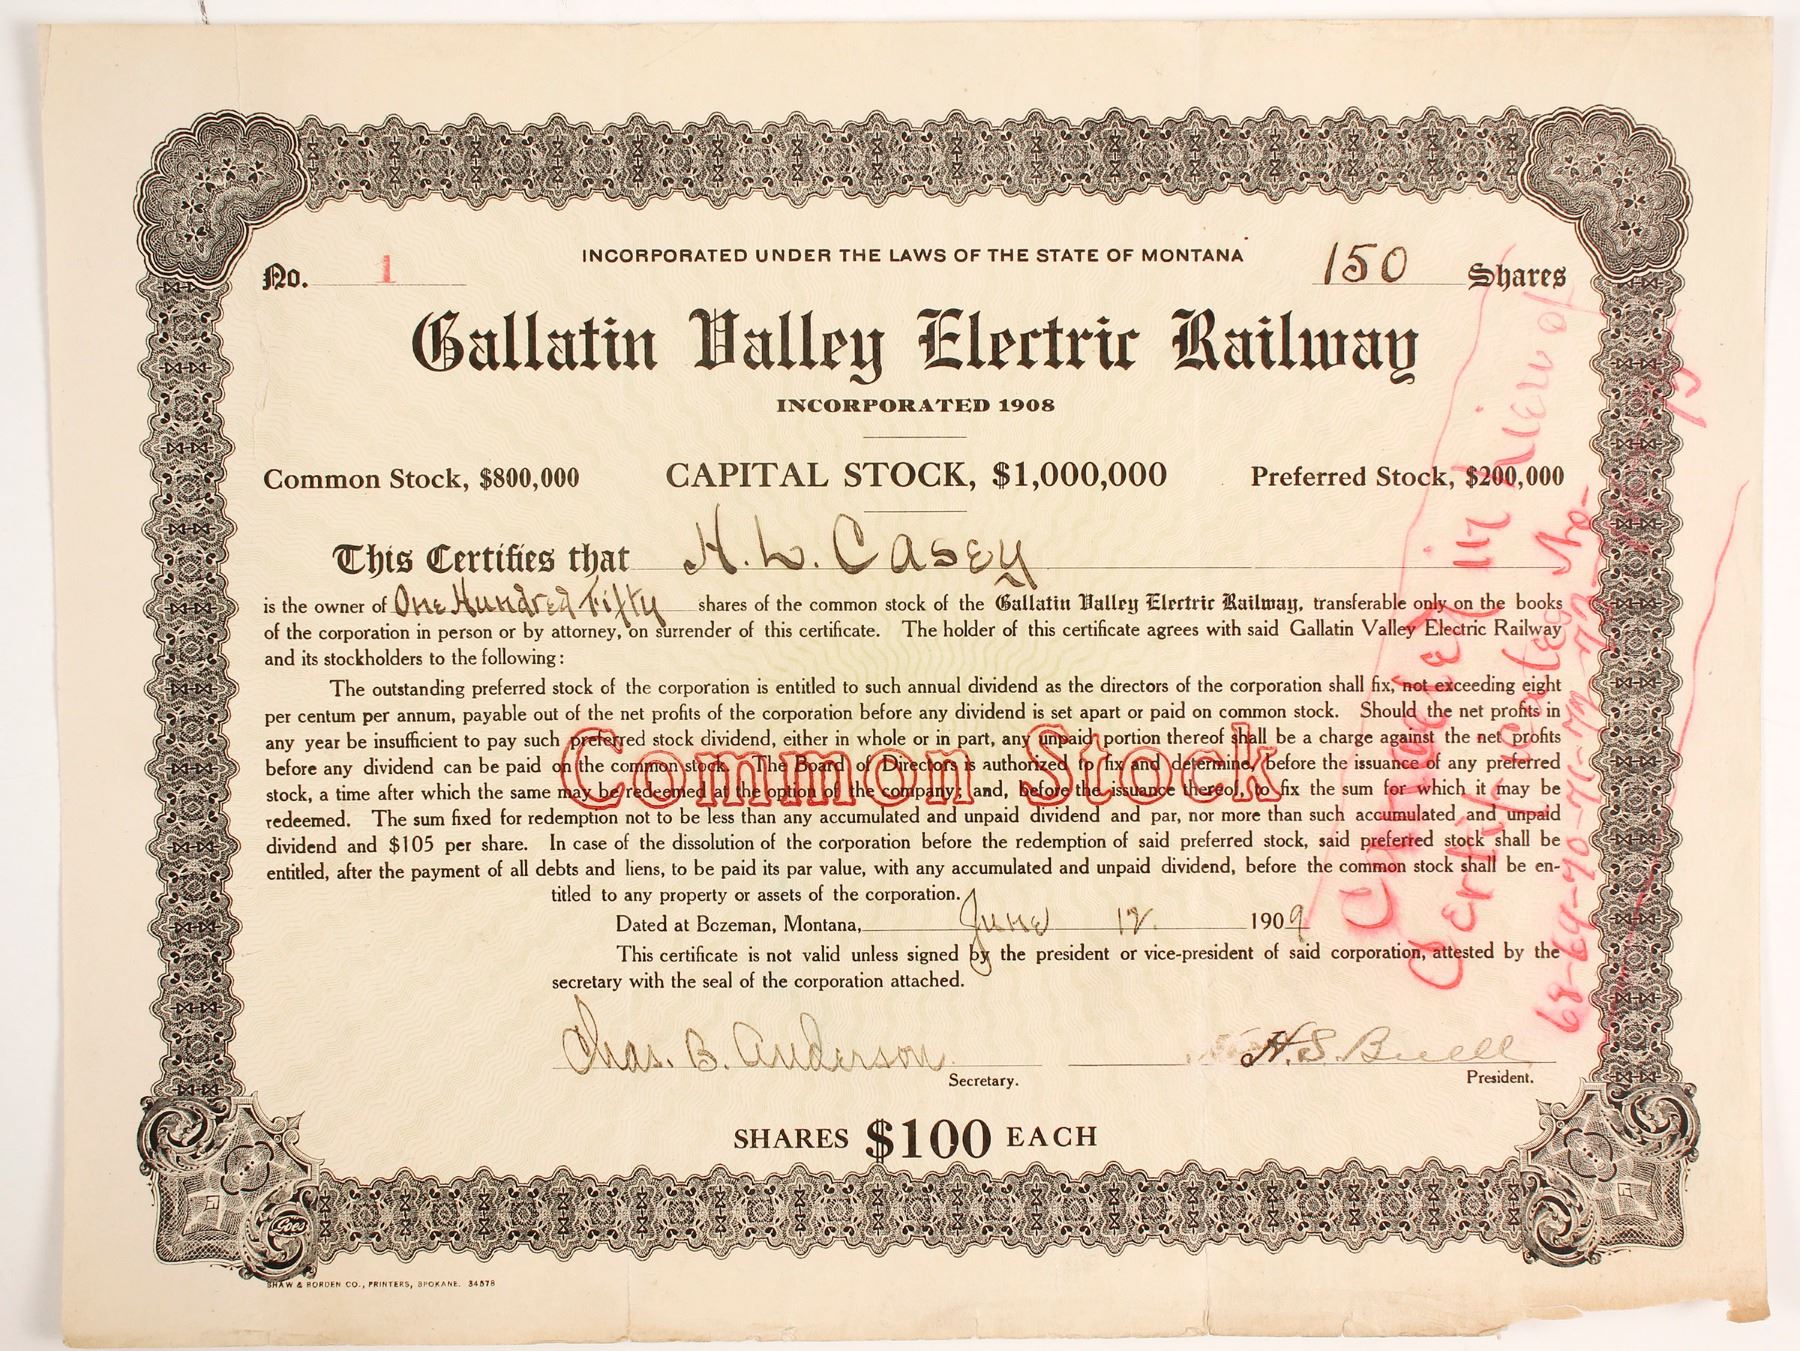 INCORPORATED UNDER THE LAWS OF THE STATE OF MONTANA
No. 1
150 Shares
Gallatin Valley Electric Railway
INCORPORATED 1908
Common Stock, $800,000 CAPITAL STOCK, $1,000,000 Preferred Stock, $200,000
This Certifies that H. L. Casey
is the owner of One Hundred Fifty shares of the common stock of the Gallatin Valley Electric Railway, transferable only on the books
of the corporation in person or by attorney, on surrender of this certificate. The holder of this certificate agrees with said Gallatin Valley Electric Railway
and its stockholders to the following:
The outstanding preferred stock of the corporation is entitled to such annual dividend as the directors of the corporation shall fix, not exceeding eight
per centum per annum, payable out of the net profits of the corporation before any dividend is set apart or paid on common stock. Should the net profits in
any year be insufficient to pay such preferred stock dividend, either in whole or in part, any unpaid portion thereof shall be a charge against the net profits
before any dividend can be paid on the common stock. The Board of Directors is authorized to fix and determine, before the issuance of any preferred
stock, a time after which the same may be redeemed at the option of the company; and, before the issuance thereof, to fix the sum for which it may be
redeemed. The sum fixed for redemption not to be less than any accumulated and unpaid dividend and par, nor more than such accumulated and unpaid
dividend and $105 per share. In case of the dissolution of the corporation before the redemption of said preferred stock, said preferred stock shall be
entitled, after the payment of all debts and liens, to be paid its par value, with any accumulated and unpaid dividend, before the common stock shall be en-
titled to any property or assets of the corporation.
Common Stock
Dated at Bozeman, Montana, June 12 1909
This certificate is not valid unless signed by the president or vice-president of said corporation, attested by the
secretary with the seal of the corporation attached.
Chas. B. Anderson H. S. Buell
Secretary. President.
SHARES $100 EACH
Goes
SHAW & BORDEN CO., PRINTERS, SPOKANE. 34578
Cancelled in Lieu of
Certificates No-
68-69-70-71-